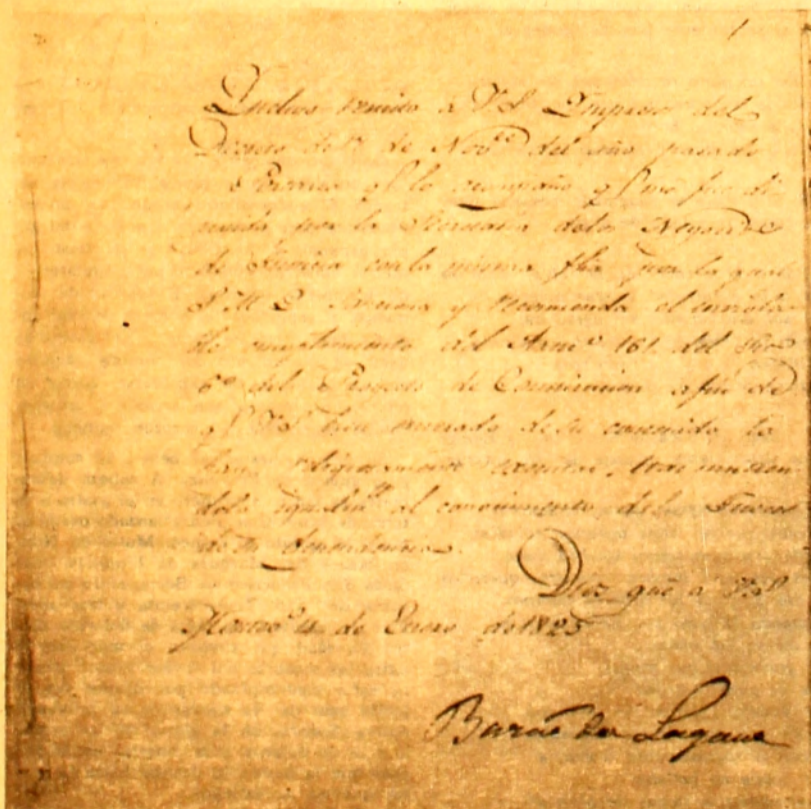 Incluso remito à VS Impreso del
Decreto de 7 de Nov.e del año pasado
q.e lo acompaño y q.e me fue
por la Secretaria delos Negocios
de Justicia con la misma fha por la qual
S M I y recomienda el
cumplimiento del Artic.o 161 del
6.o del Proyecto de Constitucion afin de
q.e VS bien enterado de su contenido lo
haga executar,
dolo igualm.te al conocimiento delos Jueces
de su dependencia.
Dios gue a VS
Montev.o 4 de Enero de 1825
Barão da Laguna